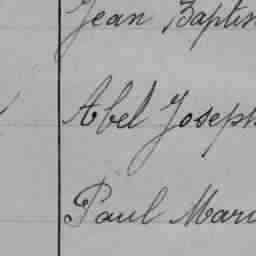 Jean Baptis
Abel Joseph
Paul Mari